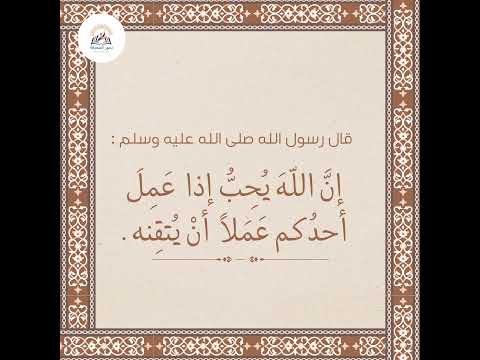 قال رسول الله صلى الله عليه وسلم :
إنَّ اللّهَ يُحِبُّ إذا عَمِلَ
أحدُكم عَمَلاً أنْ يُتقِنه .